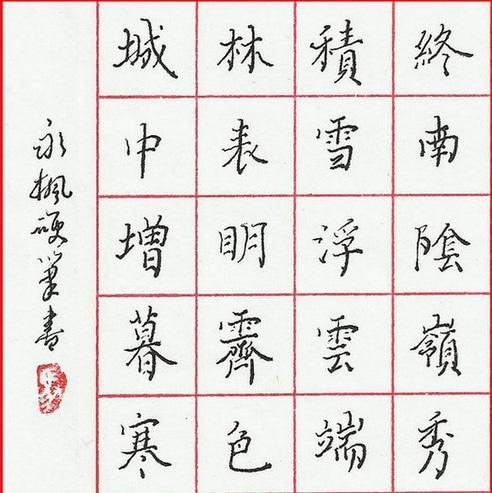 終南陰嶺秀
積雪浮雲端
林表明霽色
城中增暮寒
永楓硬筆書